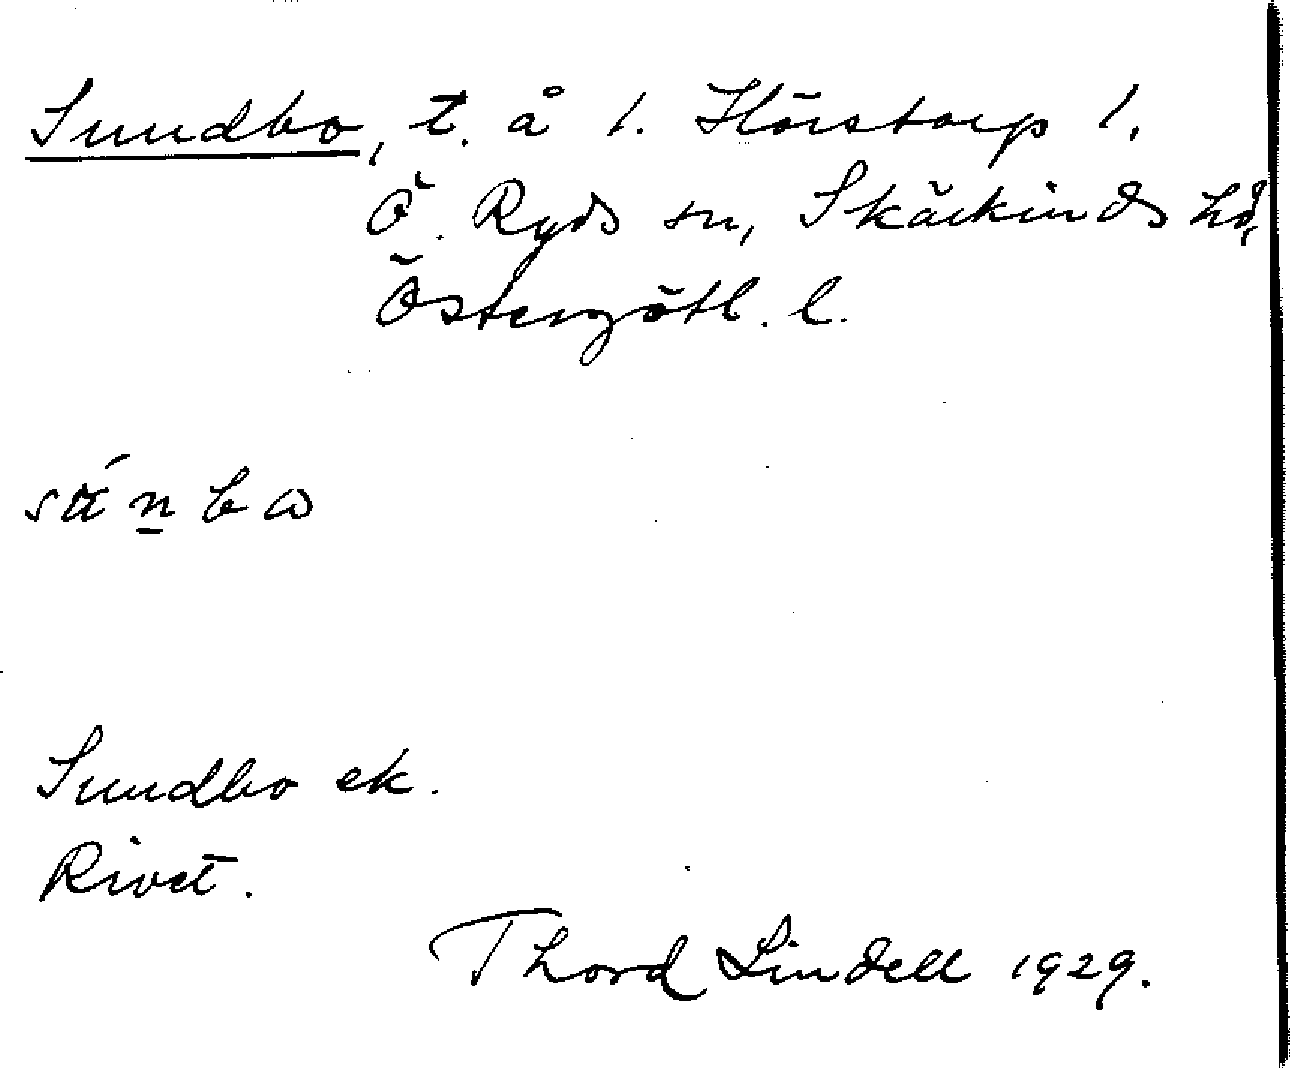 Sundbo, t. å 1. Hörstorp 1.
Ö. Ryds sn, Skärkinds hd,
Östergötl. l.
Sundbo ek.
Rivet.
Thord Lindell 1929.